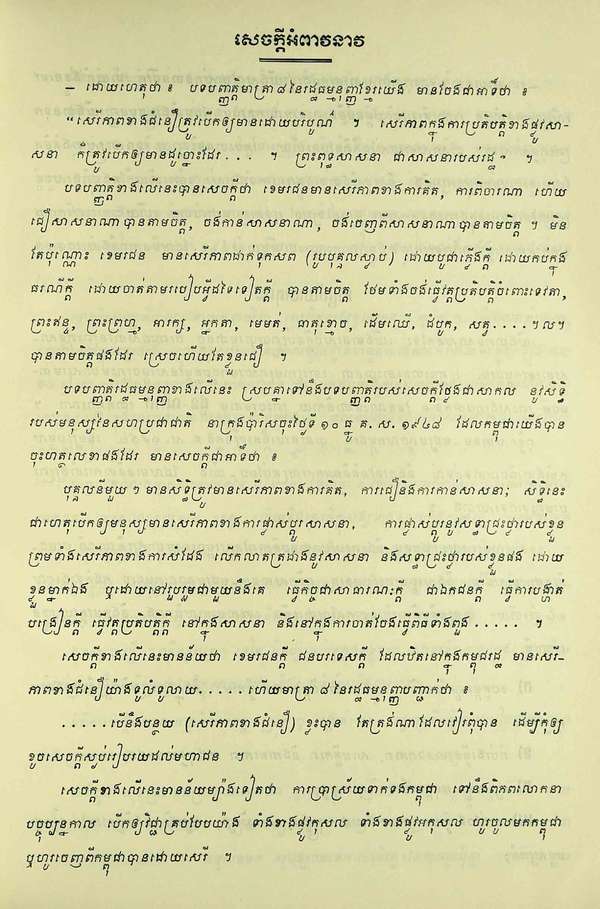 សេចក្ដីអំពាវនាវ
– ដោយហេតុថា ៖ បទបញ្ញត្តិមាត្រា ៨ នៃរដ្ឋធម្មនុញ្ញខ្មែរយើង មានចែងជាអាទិ៍ថា ៖
“ សេរីភាពខាងជំនឿត្រូវបើកឲ្យមានដោយបរិបូណ៌ ។ សេរីភាពក្នុងការប្រតិបត្តិខាងផ្លូវសា-
សនា ក៏ត្រូវបើកឲ្យមានដូច្នោះដែរ . . . ។ ព្រះពុទ្ធសាសនា ជាសាសនារបស់រដ្ឋ ” ។
បទបញ្ញត្តិខាងលើនេះបានសេចក្ដីថា ខេមរជនមានសេរីភាពខាងការគិត, ការពិចារណា ហើយ
ជឿសាសនាណាបានតាមចិត្ត, ចង់កាន់សាសនាណា, ចង់ចេញពីសាសនាណាបានតាមចិត្ត ។ មិន
តែប៉ុណ្ណោះ ខេមរជន មានសេរីភាពដាក់ទុកសព (រូបបុគ្គលស្លាប់) ដោយបូជាភ្លើងក្ដី ដោយកប់ក្នុង
ធរណីក្ដី ដោយចាត់តាមរបៀបអ្វីដទៃទៀតក្ដី បានតាមចិត្ត ថែមទាំងចង់ធ្វើវត្តប្រតិបត្តិចំពោះទេវតា,
ព្រះឥន្ទ, ព្រះព្រហ្ម, អារក្ស, អ្នកតា, មេមត់, ធាតុខ្មោច, ដើមឈើ, ដំបូក, សត្វ. . . . ។ល។
បានតាមចិត្តផងដែរ ស្រេចហើយតែខ្លួនជឿ ។
បទបញ្ញត្តិរដ្ឋធម្មនុញ្ញខាងលើនេះ ស្របគ្នាទៅនឹងបទបញ្ញត្តិរបស់សេចក្ដីថ្លែងជាសាកល នូវសិទ្ធិ
របស់មនុស្សនៃសហប្រជាជាតិ នាក្រុងប៉ារីសចុះថ្ងៃទី ១០ ធ្នូ គ. ស. ១៩៤៨ ដែលកម្ពុជាយើងបាន
ចុះហត្ថលេខាផងដែរ មានសេចក្ដីជាអាទិ៍ថា ៖
បុគ្គលនីមួយ ៗ មានសិទ្ធិត្រូវមានសេរីភាពខាងការគិត, ការជឿនិងការកាន់សាសនា; សិទ្ធិនេះ
ជាហេតុបើកឲ្យមនុស្សមានសេរីភាពខាងការផ្លាស់ប្ដូរសាសនា, ការផ្លាស់ប្ដូរនូវសទ្ធាជ្រះថ្លារបស់ខ្លួន
ព្រមទាំងសេរីភាពខាងការសំដែង លើកលាតត្រដាងនូវសាសនា និងសទ្ធាជ្រះថ្លារបស់ខ្លួនផង ដោយ
ខ្លួនម្នាក់ឯង ឬដោយនៅរួបរួមជាមួយនឹងគេ ធ្វើកិច្ចជាសាធារណៈក្ដី ជាឯកជនក្ដី ធ្វើការបង្ហាត់
បង្រៀនក្ដី ធ្វើវត្តប្រតិបត្តិក្ដី នៅក្នុងសាសនា និងនៅក្នុងការចាត់ចែងធ្វើពិធីទាំងពួង . . . . . ។
សេចក្ដីខាងលើនេះមានន័យថា ខេមរជនក្ដី ជនបរទេសក្ដី ដែលបិតនៅក្នុងកម្ពុជរដ្ឋ មានសេរី-
ភាពខាងជំនឿយ៉ាងទូលំទូលាយ. . . . . ហើយមាត្រា ៨ នៃរដ្ឋធម្មនុញ្ញបញ្ជាក់ថា ៖
. . . . . បើនឹងបន្ថយ (សេរីភាពខាងជំនឿ) ខ្លះបាន តែត្រង់ណាដែលវៀរពុំបាន ដើម្បីកុំឲ្យ
ខូចសេចក្ដីស្ងប់រៀបរយដល់មហាជន ។
សេចក្ដីខាងលើនេះមានន័យម្យ៉ាងទៀតថា ការប្រាស្រ័យទាក់ទងកម្ពុជា ទៅនឹងពិភពលោកនា
បច្ចុប្បន្នកាល បើកឲ្យវិជ្ជាគ្រប់បែបយ៉ាង ទាំងខាងផ្លូវកុសល ទាំងខាងផ្លូវអកុសល ហូរចូលមកកម្ពុជា
ឬហូរចេញពីកម្ពុជាបានដោយសេរី ។